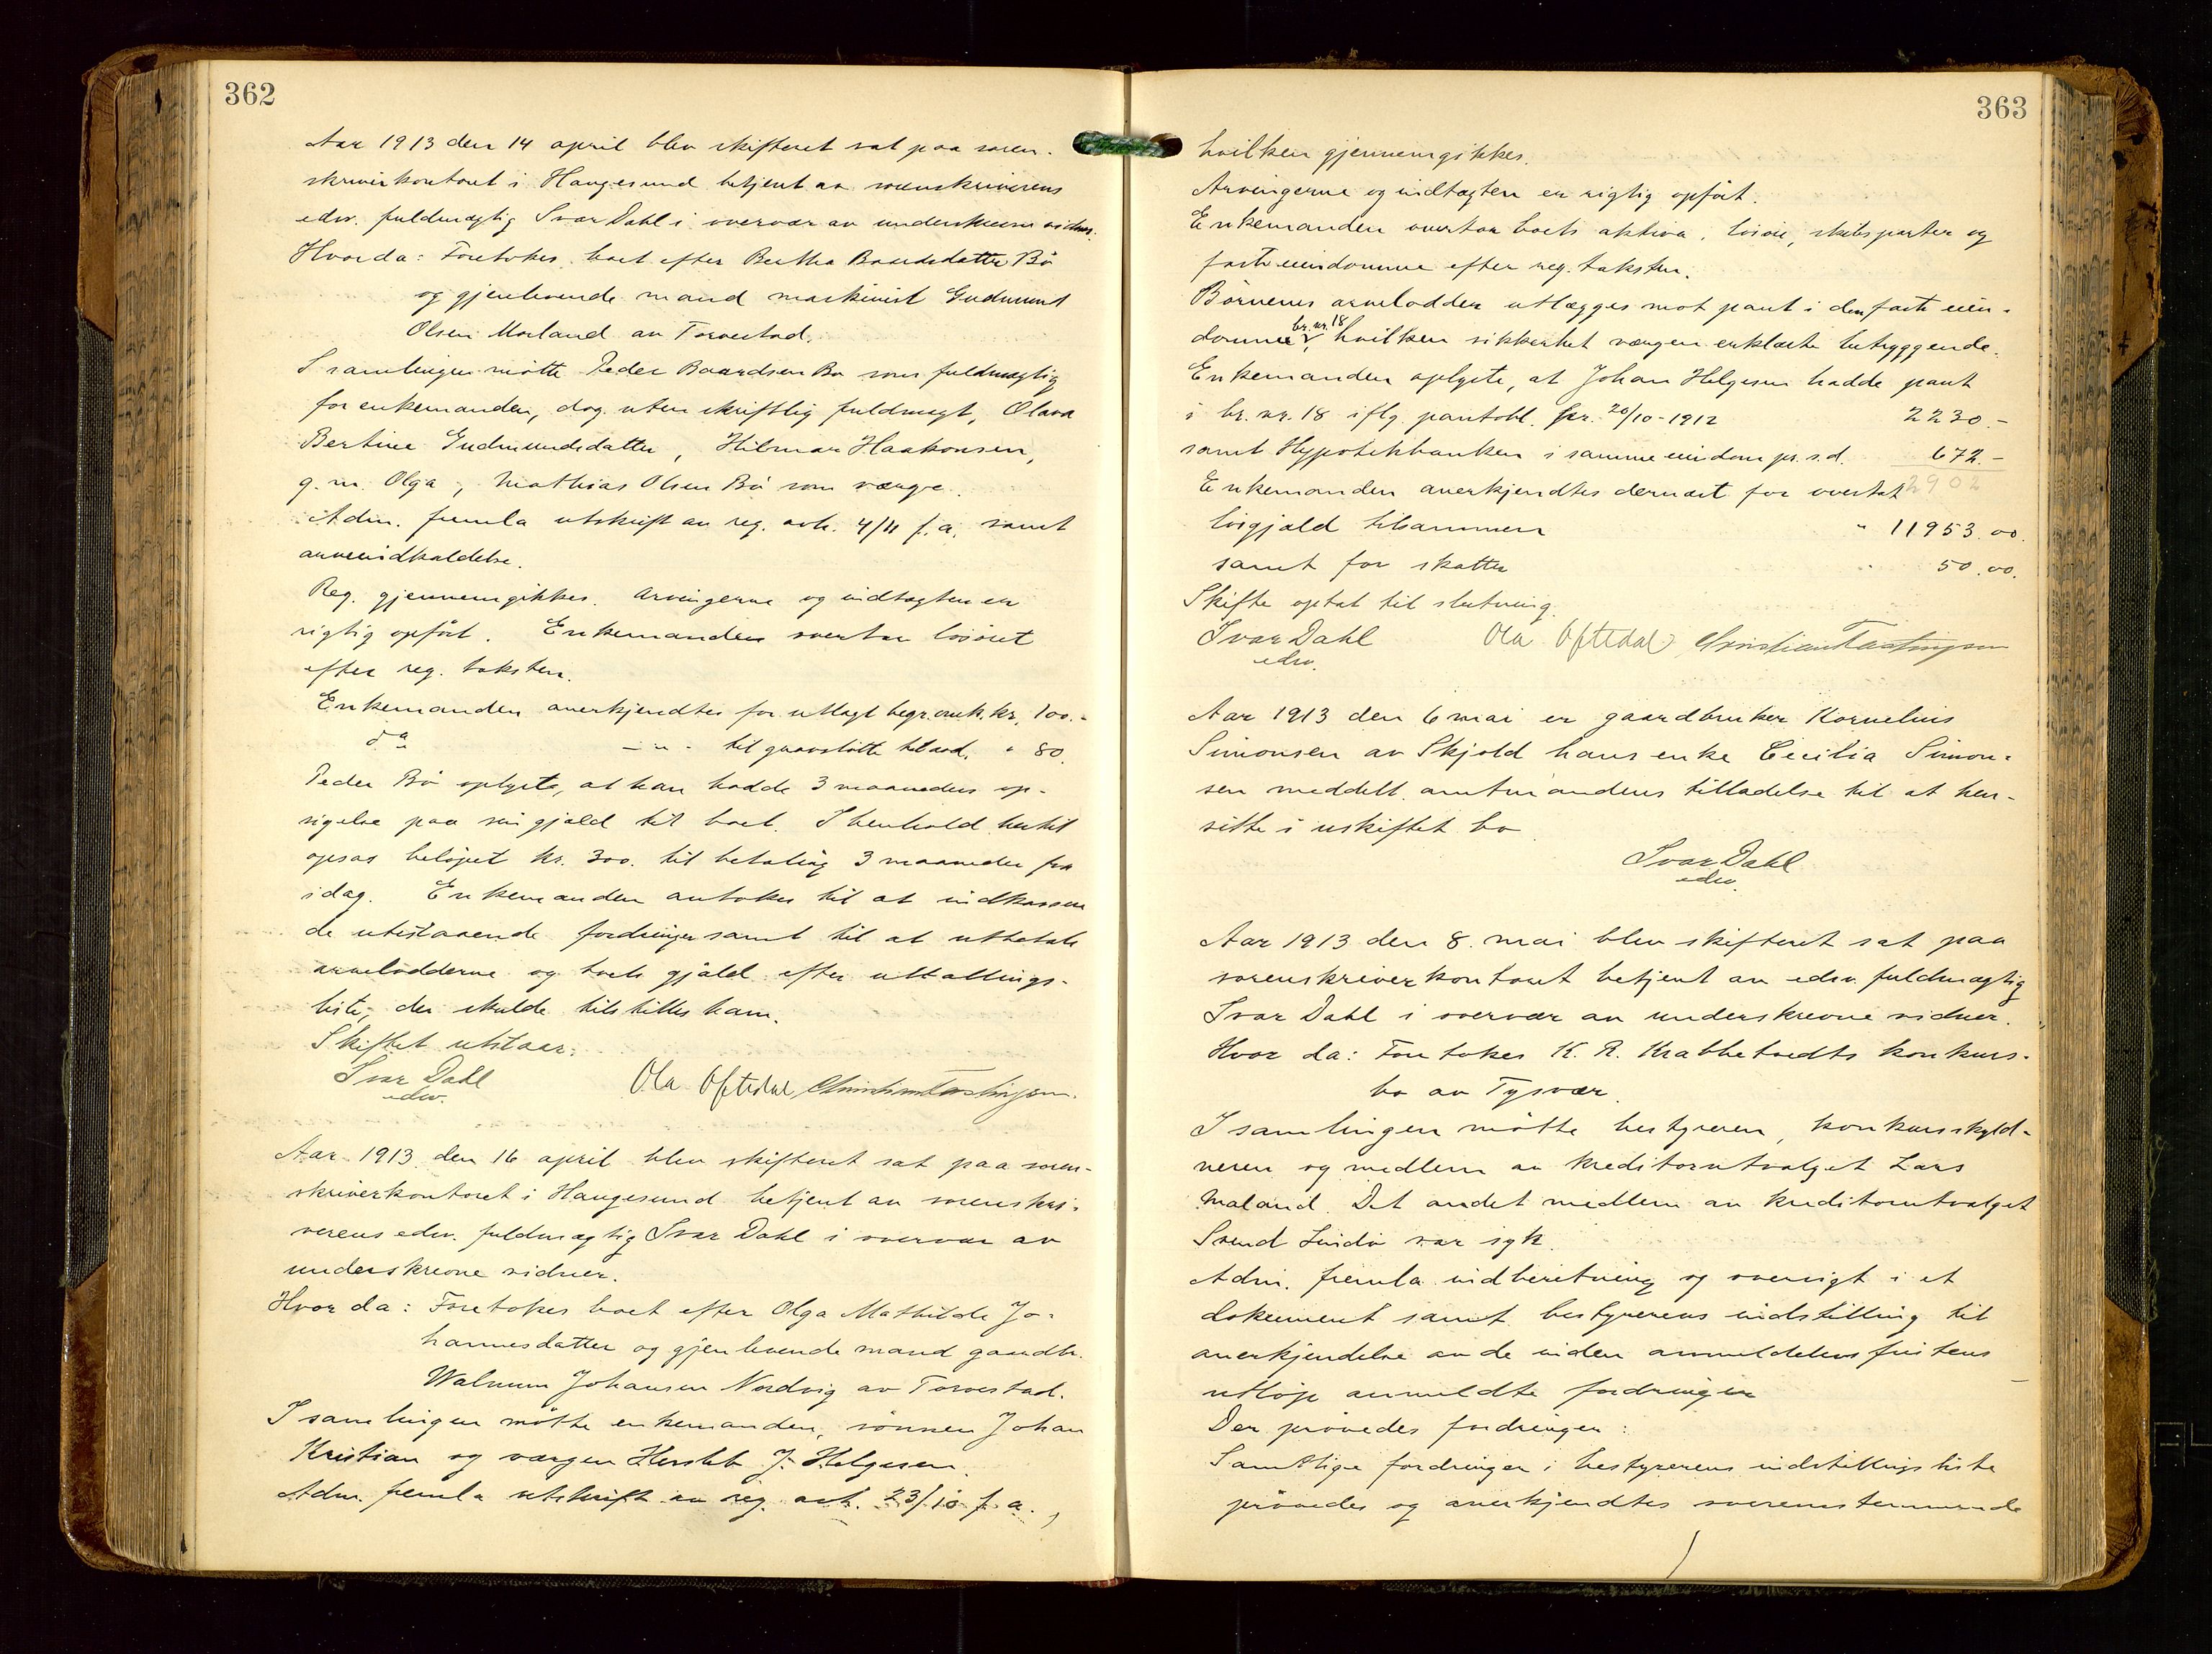 362
Aar 1913 den 14 april blev skifteret sat paa soren-
skriverkontoret i Haugesund betjent av sorenskriverens
edsv. fuldmægtig Ivar Dahl i overvær av underskrevne vidner.
Hvorda: Foretokes boet efter Bertha Baardsdatter Bö
og gjenlevende mand maskinist Gudmund
Olsen Morland av Torvestad.
I samlingen mötte Peder Baardsen Bö som fuldmægtig
for enkemanden, dog uten skriftlig fuldmagt, Olava
Bertine Gudmundsdatter, Hilmar Haakonsen,
g.m. Olga, Mathias Olsen Bö som værge.
Adm. fremla utskrift av reg. avh. 4/11 f.a. samt
arveindkaldelse.
Reg. gjennemgikkes. Arvingerne og indtægten er
rigtig opfört. Enkemanden overtar lösöret
efter reg. taksten.
Enkemanden anerkjendtes for utlagt begr.omk. kr. 100.-
do - " - til gravstötte tilsad. " 80.
Peder Bö oplyste, at han hadde 3 maaneders op-
sigelse paa sin gjæld til boet. I henhold hertil
opsas belöpet kr. 300. til betaling 3 maaneder fra
idag. Enkemanden antokes til at indkassere
de utestaaende fordringer samt til at utbetale
arvelodderne og boets gjæld efter utlodnings-
liste, der skulde tilstilles ham.
Skiftet utstaar.
Ivar Dahl Ola Oftedal Christian Tastingsen.
edsv.
Aar 1913 den 16 april blev skifteret sat paa soren-
skriverkontoret i Haugesund betjent av sorenskri-
verens edsv. fuldmægtig Ivar Dahl i overvær av
underskrevne vidner.
Hvor da: Foretokes boet efter Olga Mathilde Jo-
hannesdatter og gjenlevende mand gaardbr.
Walnum Johansen Nordvig av Torvestad.
I samlingen mötte enkemanden, sönnen Johan
Kristian og værgen Hersleb J. Helgesen.
Adm. fremla utskrift av reg. avh. 23/10 f.a.,
363
hvilken gjennemgikkes.
Arvingerne og indtægten er rigtig opfört.
Enkemanden overtar boets aktiva, lösöre, skibsparter og
faste eiendomme efter reg. taksten.
Börnenes arvelodder utlægges mot pant i den faste eien-
br. nr. 18
domme, hvilken sikkerhet værgen erklærte betryggende.
Enkemanden oplyste, at Johan Helgesen hadde pant
i br. nr. 18 iflg. pantobl. fra 20/10-1912 2230.-
samt Hypotekbanken i samme eiendom pr. s.d. 672.-
2902
Enkemanden anerkjendtes dernæst for overtat
bogjæld tilsammen " 11953.00.
samt for skatter " 50.00.
Skifte optat til slutning.
Ivar Dahl Ola Oftedal Christian Tastingsen
edsv.
Aar 1913 den 6 mai er gaardbruker Kornelius
Simonsen av Skjold hans enke Cecilia Simon-
sen meddelt amtmandens tilladelse til at hen-
sitte i uskiftet bo
Ivar Dahl
edsv.
Aar 1913 den 8. mai blev skifteret sat paa
sorenskriverkontoret betjent av edsv. fuldmægtig
Ivar Dahl i overvær av underskrevne vidner.
Hvor da: Foretokes K. R. Krabbetvedts konkurs-
bo av Tysvær.
I samlingen mötte bestyreren, konkursskyld-
neren og medlem av kreditorutvalget Lars
Maland. Det andet medlem av kreditorutvalget
Svend Lindö var syk.
Adm. fremla indberetning og oversigt i et
dokument samt bestyrerens indstilling til
anerkjendelse av de inden anmeldelsesfristens
utlöp anmeldte fordringer
Der prövedes fordringer:
Samtlige fordringer i bestyrerens indstillingsliste
prövedes og anerkjendtes overensstemmende